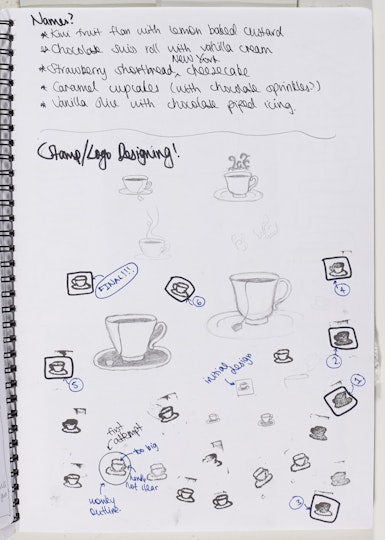 Names?
* Kiwi fruit flan with lemon baked custard
* Chocolate swiss roll with vanilla cream
NEW YORK
* Strawberry shortbread ^ cheesecake
* Caramel cupcakes (with chocolate sprinkles?)
* Vanilla slice with chocolate piped icing.
Stamp/Logo Designing!
FINAL!!!
6
4
5
2
initial design
1
first attempt
too big
handle not clear
wonky outline.
3